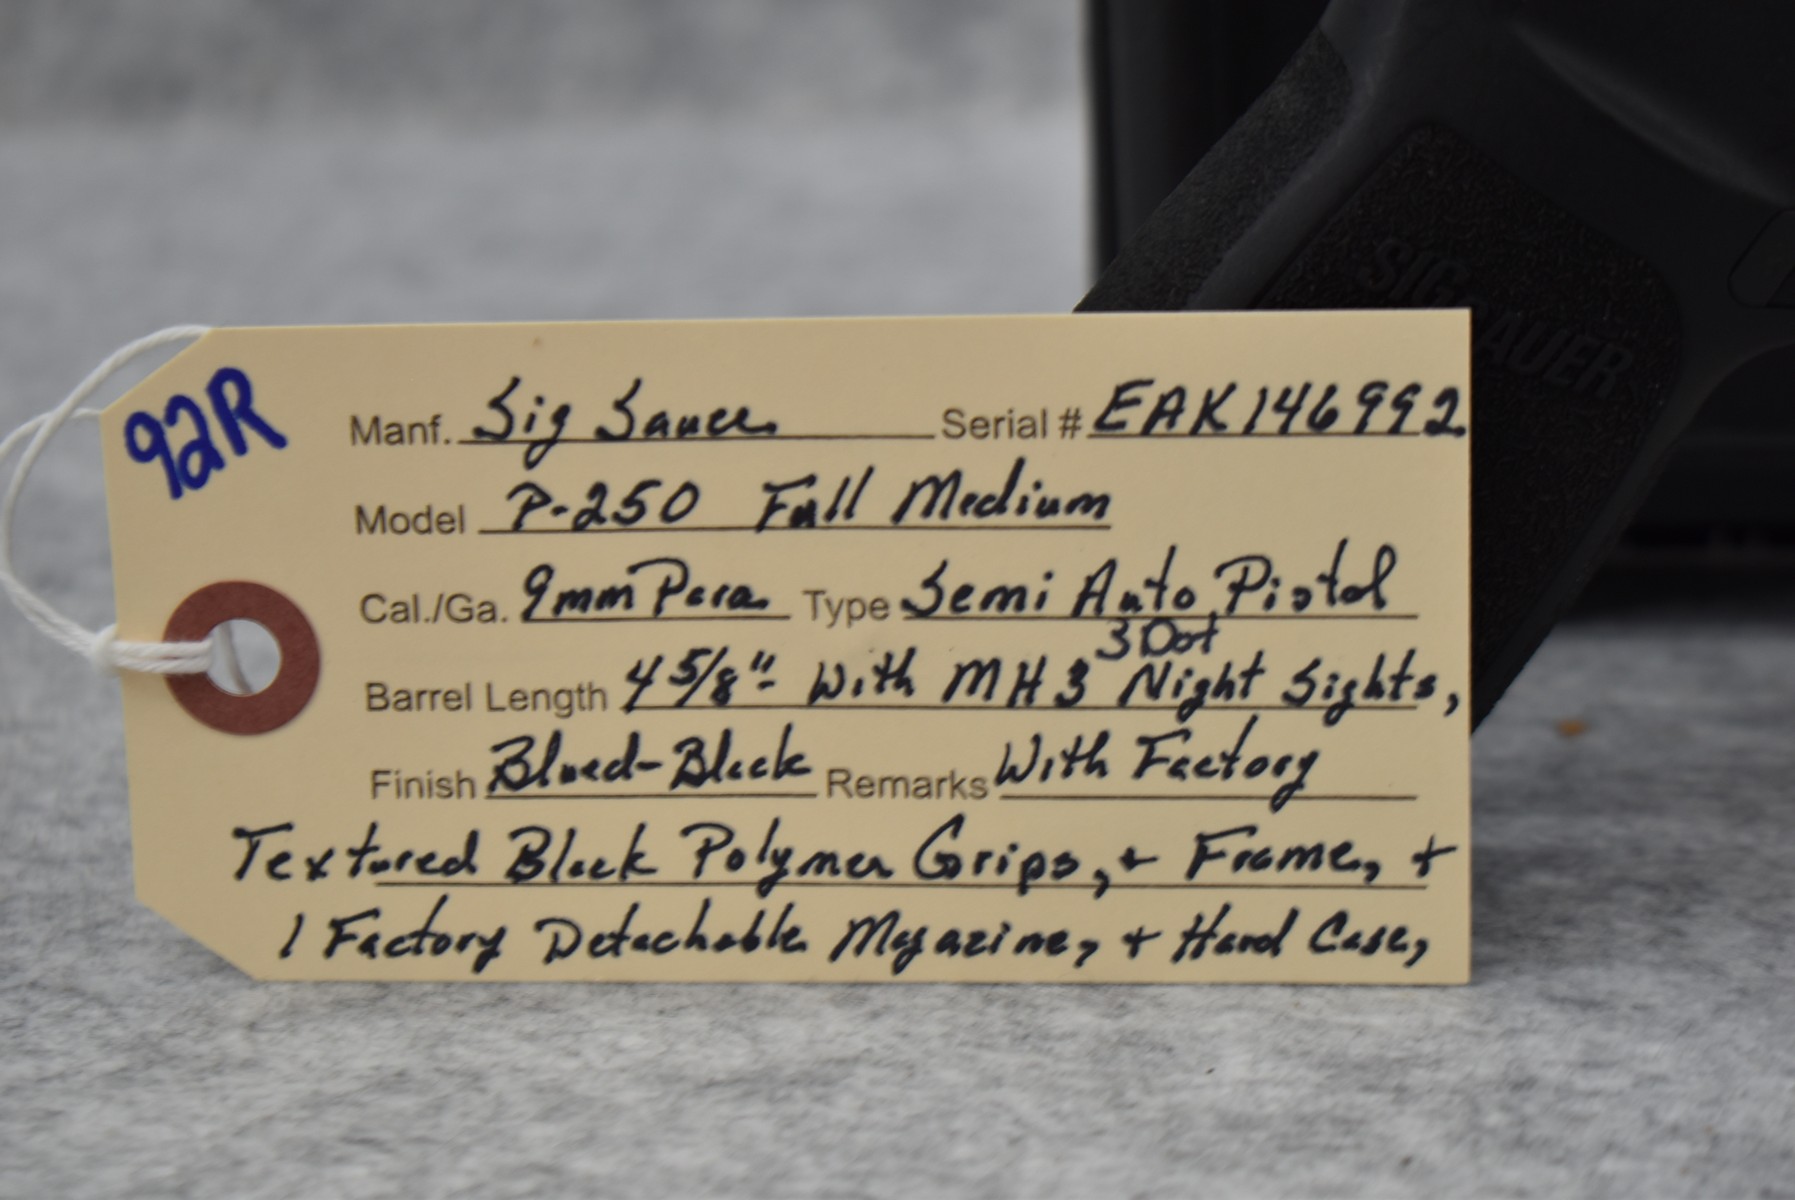 SIG SAUER
92R
Manf. Sig Sauer Serial # EAK146992
Model P-250 Full Medium
Cal./Ga. 9mm Para. Type Semi Auto Pistol
3 Dot
Barrel Length 4 5/8" - With MH3 Night Sights,
Finish Blued-Black Remarks With Factory
Textured Black Polymer Grips, + Frame, +
1 Factory Detachable Magazine, + Hard Case,